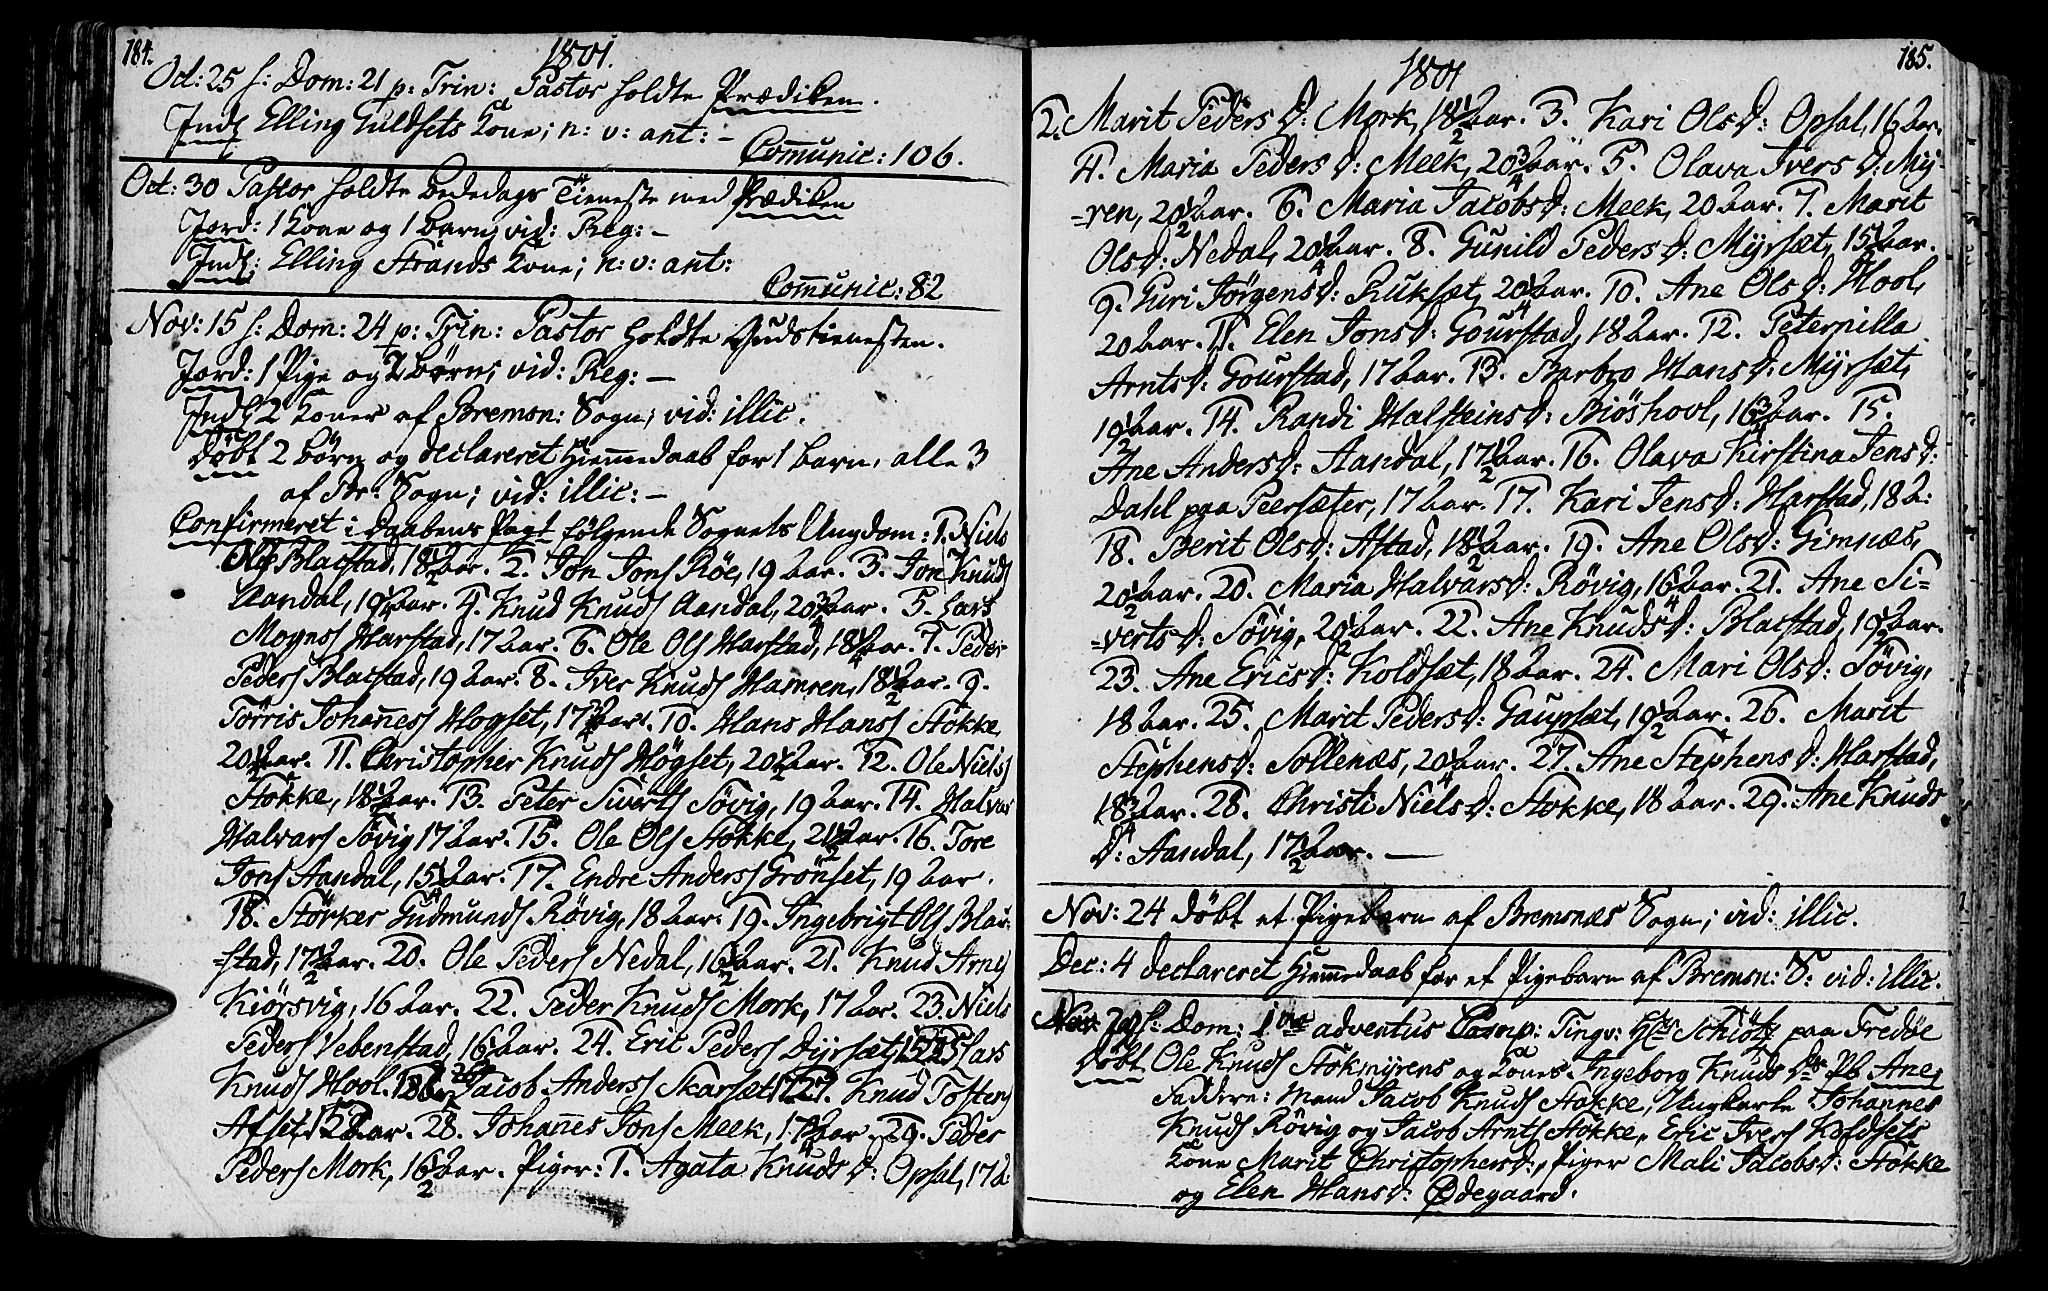 184.
1801.
Oct: 25 s: Dom: 21 p: Trin: Pastor holdte Prædiken.
Indl: Elling Guldsets Kone; n: v: ant: –
Comunic: 106.
Oct: 30 Pastor holdte Bededags Tieneste med Prædiken
Jord: 1 Kone og 1 Barn; vid: Reg: –
Indl: Elling Strands Kone; n: v: ant:
Comunic: 82
Nov: 15 s: Dom: 24 p: Trin: Pastor holdte Gudstienesten.
Jord: 1 Pige og 2 Børn; vid: Reg: –
Indl: 2 Koner af Bremsn: Sogn; vid: illic.
Døbt 2 Børn og declareret Hiemmedaab for 1 Barn, alle 3
af Br: Sogn; vid: illic: –
Confirmeret i Daabens Pagt følgende Sognets Ungdom: 1. Niels
Ols Blacstad, 18 1/2 aar. 2. Jon Jons Röe, 19 aar. 3. Jon Knuds
Aandal, 19 1/2 aar. 4. Knud Knuds Aandal, 20 3/4 aar. 5. Lars
Mogens Harstad, 17 aar. 6. Ole Ols Harstad, 18 1/4 aar. 7. Peder
Peders Blacstad, 19 aar. 8. Iver Knuds Hamren, 18 1/2 aar. 9.
Törris Johannes Hogset, 17 1/4 aar. 10. Hans Hans Stokke,
20 1/2 aar. 11. Christopher Knuds Högset, 20 1/2 aar. 12. Ole Niels
Stokke, 18 1/2 aar. 13. Peter Siverts Sövig, 19 aar. 14. Halvor
Halvars Sövig 17 aar. 15. Ole Ols Stokke, 21 1/2 aar. 16. Tore
Jons Aandal, 15 1/4 aar. 17. Endre Anders Grönset, 19 aar.
18. Störker Gudmunds Rövig, 18 aar. 19. Ingebrigt Ols Blac-
-stad, 17 1/2 aar. 20. Ole Peders Nedal, 16 1/2 aar. 21. Knud Arnes
Kiörsvig, 16 aar. 22. Peder Knuds Mork, 17 aar. 23. Niels
Peders Vebenstad, 16 1/2 aar. 24. Eric Peders Dyrsæt, 15 25 Lars
Knuds Hool 18 26 Jacob Anders Skarsæt 27. Knud Tostens
Afset, 15 aar. 28. Johannes Jons Meek, 17 1/4 aar. 29. Peder
Peders Mork, 16 1/2 aar. Piger: 1. Agata Knuds D: Opsal, 17 a:
185.
1801
2. Marit Peders D: Mork, 18 1/2 aar. 3. Kari Ols D: Opsal, 16 aar.
4. Maria Peders D: Meek, 20 3/4 aar. 5. Olava Ivers D: Myr-
-ren, 20 1/2 aar. 6. Maria Jacobs D: Meek, 20 aar. 7. Marit
Ols D: Nedal, 20 1/4 aar. 8. Gunild Peders D: Myrsæt, 15 1/2 aar.
9. Guri Jörgens D: Ruksæt, 20 1/4 aar. 10. Ane Ols D: Hool,
20 aar. 11. Elen Jons D: Gourstad, 18 aar. 12. Peternilla
Arnts D: Gourstad, 17 aar. 13. Barbro Hans D: Myrsæt,
19 1/2 aar. 14. Randi Halsteins D: Biöshovl, 16 3/4 aar. 15.
Ane Anders D: Aandal, 17 1/2 aar. 16. Olava Kirstina Jens D:
Dahl paa Peersæter, 17 aar. 17. Kari Jens D: Harstad, 18 a:
18. Berit Ols D: Astad, 18 1/2 aar. 19. Ane Ols D: Gimnæs,
20 1/2 aar. 20. Maria Halvars D: Rövig, 16 1/4 aar. 21. Ane Si-
-verts D: Sövig, 20 1/2 aar. 22. Ane Knuds D: Blacstad, 19 1/2 aar.
23. Ane Erics D: Koldsæt, 18 aar. 24. Mari Ols D: Sövig,
18 aar. 25. Marit Peders D: Gaupsæt, 19 1/2 aar. 26. Marit
Stephens D: Sollenæs, 20 1/4 aar. 27. Ane Stephens D: Harstad,
18 3/4 aar. 28. Christi Niels D: Stokke, 18 aar. 29. Ane Knuds
D: Aandal, 17 1/2 aar. –
Nov: 24 döbt et Pigebarn af Bremsnæs Sogn; vid: illic.
Dec: 4 declareret Hiemmedaab for et Pigebarn af Bremsn: S: vid: illic.
Nov 29 s: Dom: 1ma adventus Comp: Tingv: Hr Schiötz paa Fredöe
Döbt Ole Knuds Stokmyrens og Kones Ingeborg Knuds D: Pb Ane;
Faddere: Mand Jacob Knuds Stokke, Ungkarle Johannes
Knuds Rövig og Jacob Arnts Stokke, Eric Ivers Koldsets
Kone Marit Christophers D:, Piger Mali Jacobs D: Stokke
og Elen Hans D: Ødegaard.